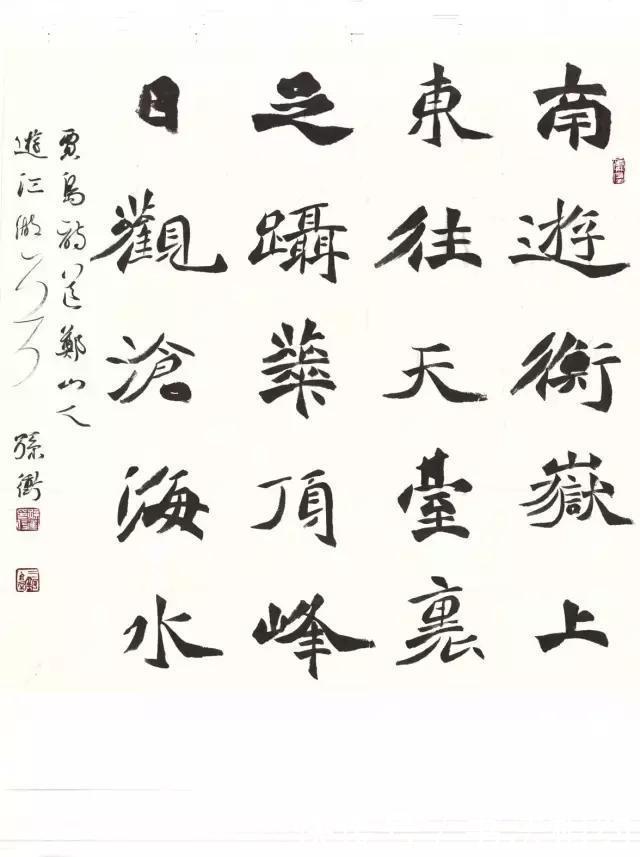 南遊衡嶽上
東往天臺裏
足躡華頂峰
目觀滄海水
賈島詩送鄭山人
遊江湖
孫衛